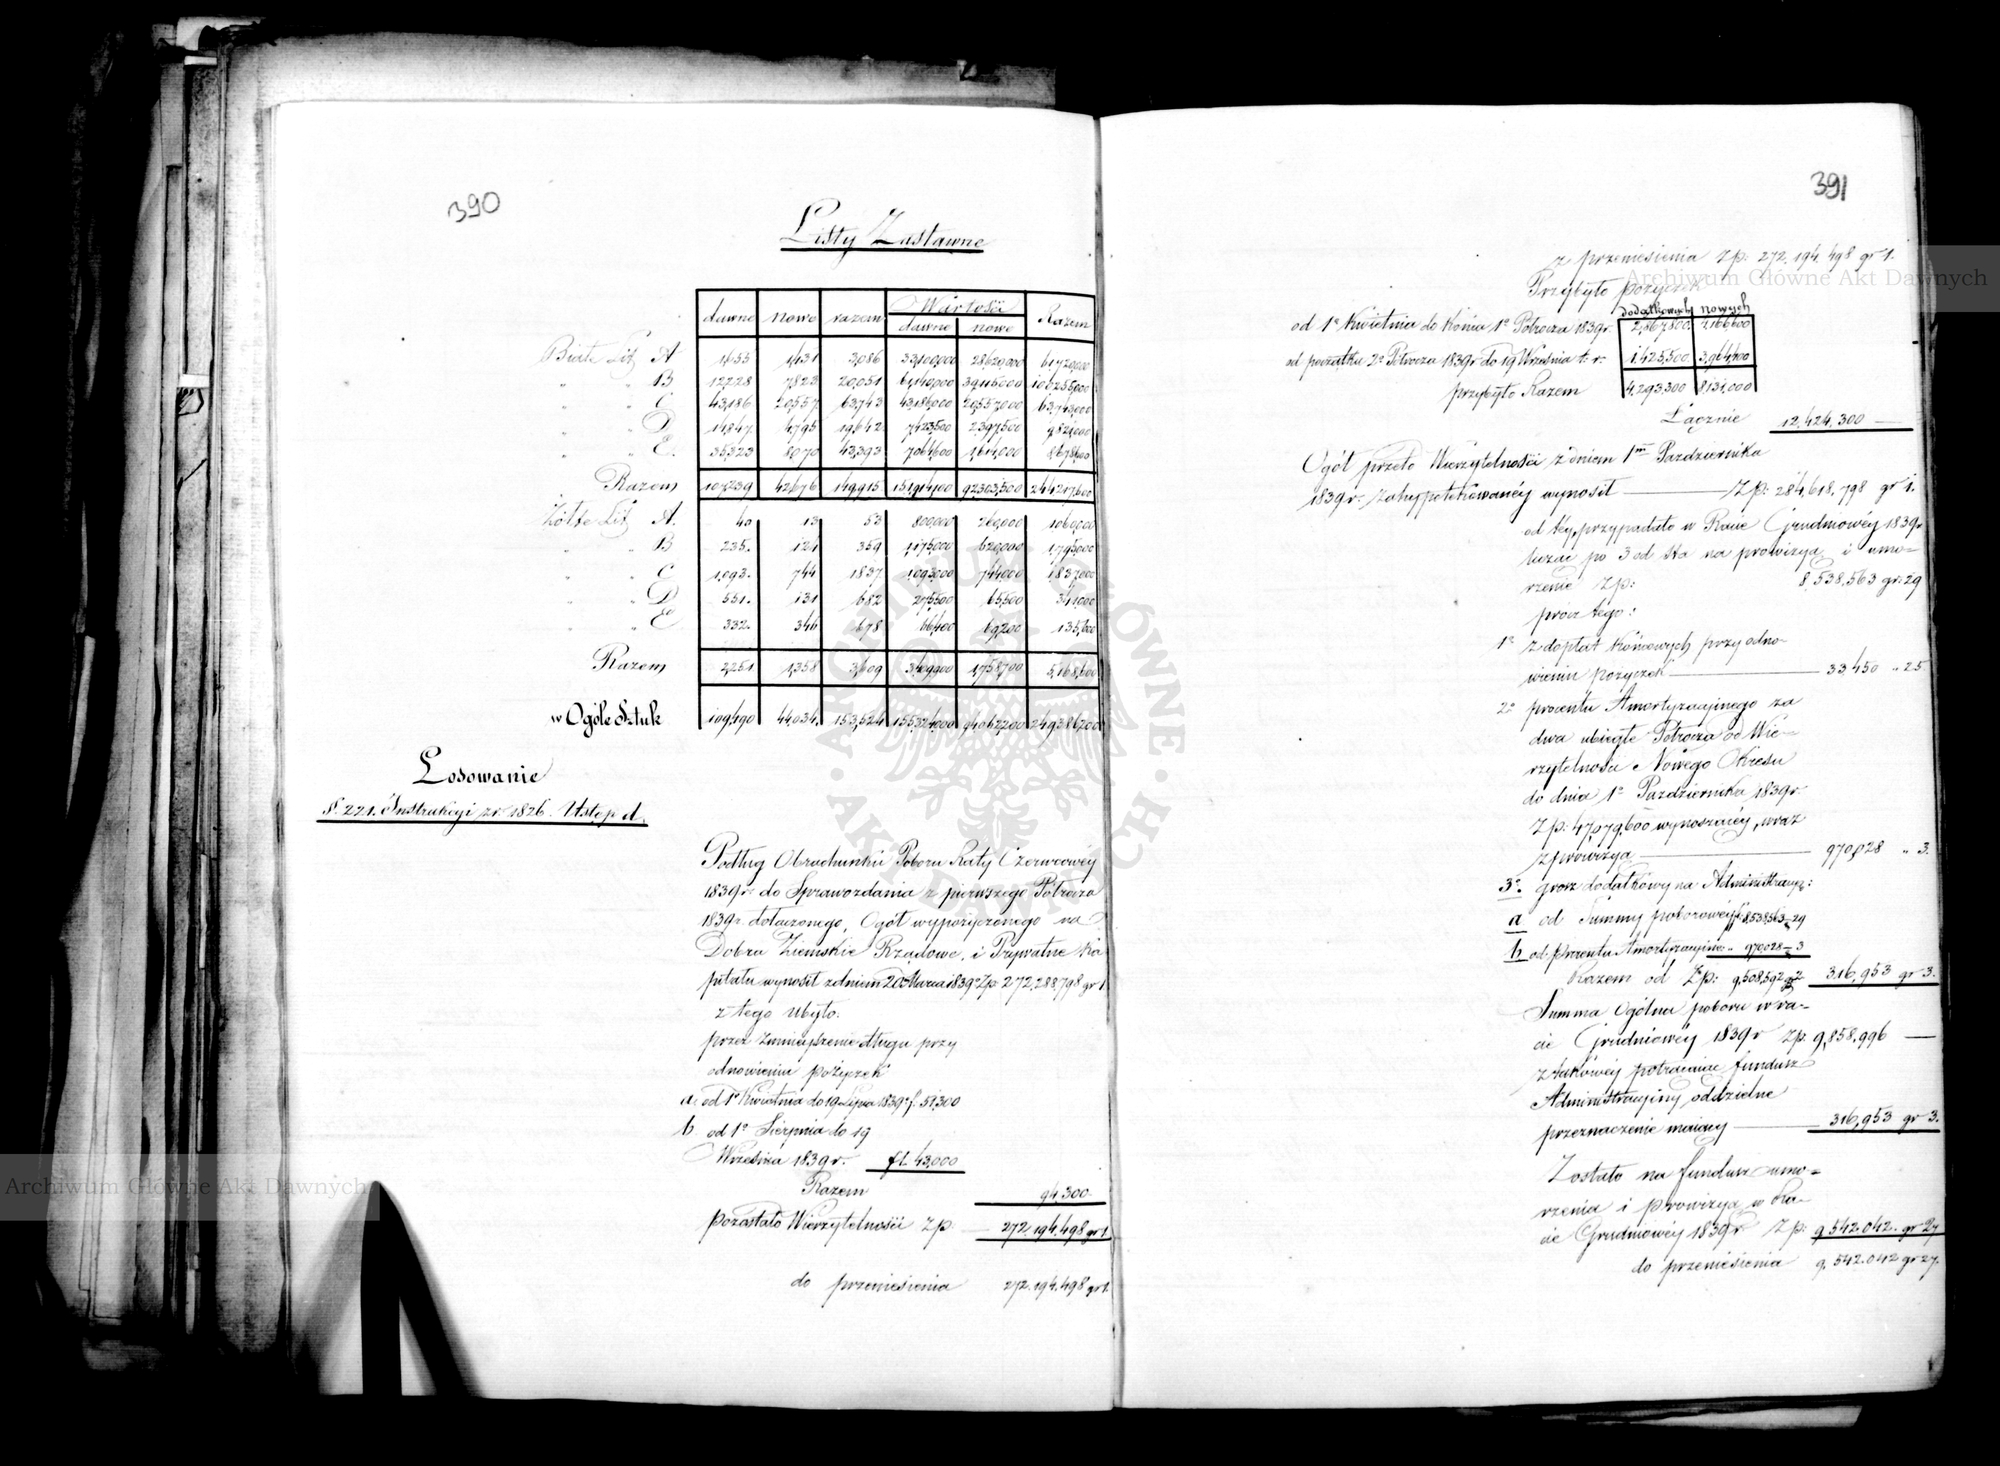 390
Listy Zastawne
dawne nowe razem Wartości Razem
dawne nowe
Białe Lit. A 1,655 1,431 3,086 33,100,000 28,620,000 61,720,000
" " B 12,228 7,823 20,051 61,140,000 39,115,000 100,255,000
" " C 43,186 20,557 63,743 43,186,000 20,557,000 63,743,000
" " D 14,847 4,795 19,642 7,423,500 2,397,500 9,821,000
" " E 35,323 8,070 43,393 7,064,600 1,614,000 8,678,600
Razem 107,239 42,676 149,915 151,914,100 92,303,500 244,217,600
Żółte Lit. A. 40 13 53 800,000 260,000 1,060,000
" " B 235. 124 359 1,175,000 620,000 1,795,000
" " C 1,093. 744 1837 1,093,000 744,000 1,837,000
" " D 551. 131 682 275,500 65,500 341,000
" " E 332. 346 678 66,400 69,200 135,600
Razem 2,251 1,358 3,609 3,409,900 1,758,700 5,168,600
w Ogóle Sztuk 109,490 44,034. 153,524 155,324,000 94,062,200 249,386,200
Losowanie
§. 221. Instrukcyi z r. 1826. Ustęp d.
Podług Obrachunku Poboru Raty Czerwcowéy
1839 r. do Sprawozdania z pierwszego Półrocza
1839 r. dołączonego, Ogół wypożyczonego na
Dobra Ziemskie Rządowe, i Prywatne ka
pitału wynosił z dniem 20 Marca 1839 r. Zp: 272,288,798 gr 1
z tego Ubyło.
przez zmnieyszenie długu przy
odnowieniu pożyczek
a. od 1o Kwietnia do 19 Lipca 1839 r. f. 51,300
b. od 1o Sierpnia do 19
Września 1839 r. fl. 43,000
Razem 94,300
pozostało Wierzytelności Zp: 272.194.498 gr 1.
do przeniesienia 272.194.498 gr 1.
391
z przeniesienia Zp: 272.194.498 gr 1.
Przybyło pożyczek
dodatkowych nowych
od 1o Kwietnia do końca 1o Półrocza 1839 r. 2,867,800 4,166,600
od początku 2o Półrocza 1839 r. do 19 Września t. r. 1,425,500 3,964,400
przybyło Razem 4,293,300 8,131,000
Łącznie 12,424,300 —
Ogół przeto Wierzytelności z dniem 1m Października
1839 r. zahypotekowanéy wynosił — Zp: 284,618,798 gr 1.
od téy przypadało w Racie Grudniowéy 1839 r.
licząc po 3 od sta na prowizyą i umo-
rzenie Zp: 8,538,563 gr: 29
prócz tego:
1o z dopłat końcowych przy odno-
wieniu pożyczek — 33,450 " 25
2o procentu Amortyzacyinego za
dwa ubiegłe Półrocza od Wie-
rzytelności Nowego Okresu
do dnia 1o Października 1839 r.
Zp: 47,079,600 wynoszącéy, wraz
z prowizyą — 970,028 " 3.
3o. grosz dodatkowy na Administracyę:
a od Summy poborowéy f. 8,538,563 – 29
b od procentu Amortyzacyine " 970,028 – 3
Razem od Zp: 9,508,592 gr 2 316,953 gr 3.
Summa Ogólna poboru w ra-
cie Grudniowéy 1839 r Zp. 9,858,996 —
z takowéy potrącaiąc fundusz
Administracyiny, oddzielne
przeznaczenie maiący — 316,953 gr 3.
Zostało na fundusz umo-
rzenia i prowizyą w Ra-
cie Grudniowéy 1839 r Zp: 9.542.042. gr 27
do przeniesienia 9.542.042 gr 27.
Archiwum Główne Akt Dawnych
Archiwum Główne Akt Dawnych
ARCHIWUM GŁÓWNE AKT DAWNYCH